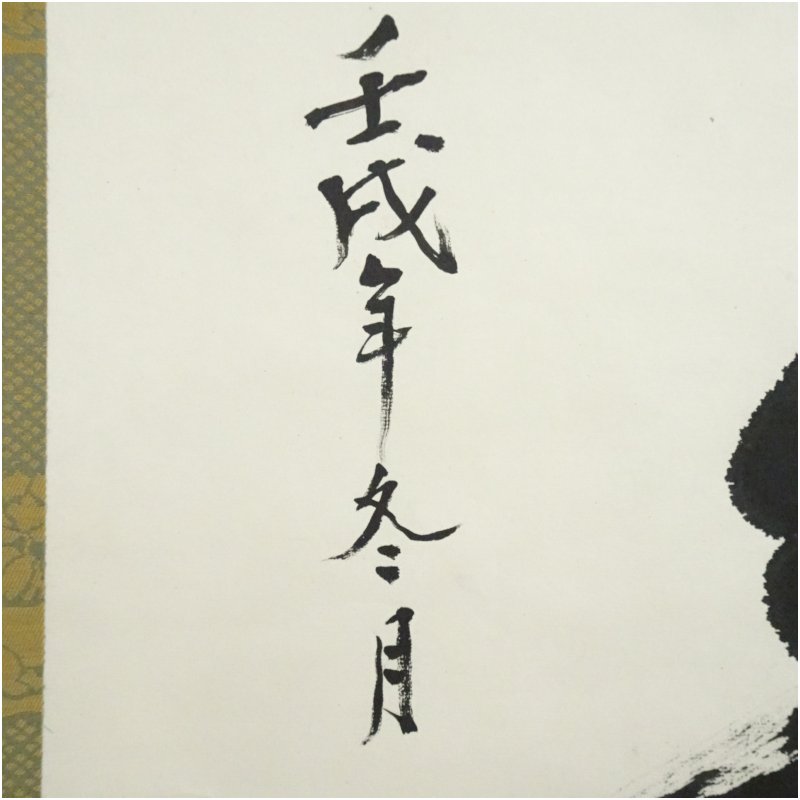 壬戌年冬月